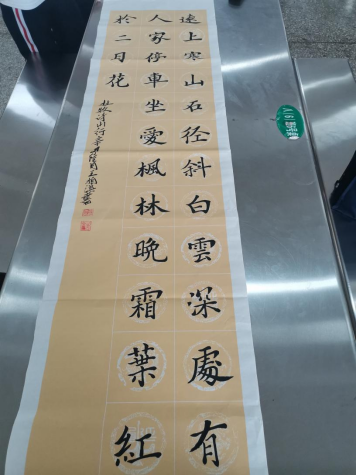 遠上寒山石径斜白雲深處有
人家停車坐愛楓林晚霜葉紅
於二月花
杜牧詩山行